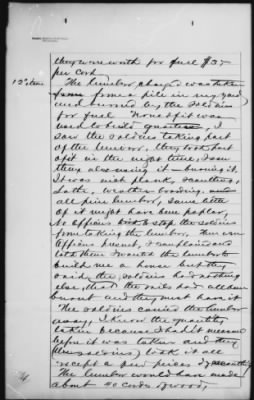 they were worth for fuel $3.-
per cord
12th item The lumber charged was taken
from a pile in my yard
and burned by the soldiers
for fuel. None of it was
used to build quarters, I
saw the soldiers taking part
of the lumber, they took part
of it in the night time, I saw
them also using it - burning it.
It was inch plank, scantling,
Laths, weather boarding,
all pine lumber, some little
of it might have been poplar,
No officers tried to stop the soldiers
from taking the lumber. There were
officers present, I complained and
told them I wanted the lumber to
build me a house but they
said the soldiers had nothing
else, that the rails had all been
burnt and they must have it
The soldiers carried the lumber
away, I know the quantity
taken because I had it measured
before it was taken and they
(the soldiers) took it all
except a few pieces of scantling
The lumber would have made
about 40 cords of wood,